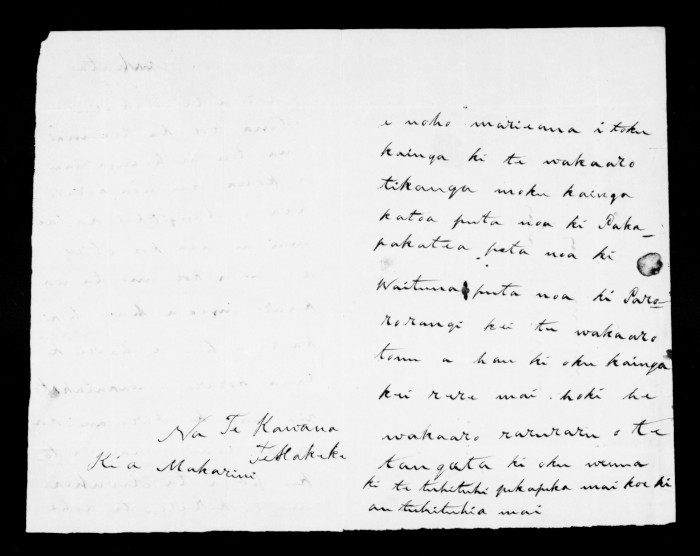 e noho marieana i toku
kainga ki te wakaaro
tikanga moku kainga
katoa puta noa ki Paka-
pakatea puta noa ki
Waituna puta noa ki Paro-
rorangi kei te wakaaro
tonu a hau ki oku kainga
kei rere mai hoki he
wakaaro raruraru o te
tangata ki oku wenua
ki te tuhituhi pukapuka mai koe ki
au tuhituhia mai
Na Te Kawana
Te Hakeke
Ki a Makarini